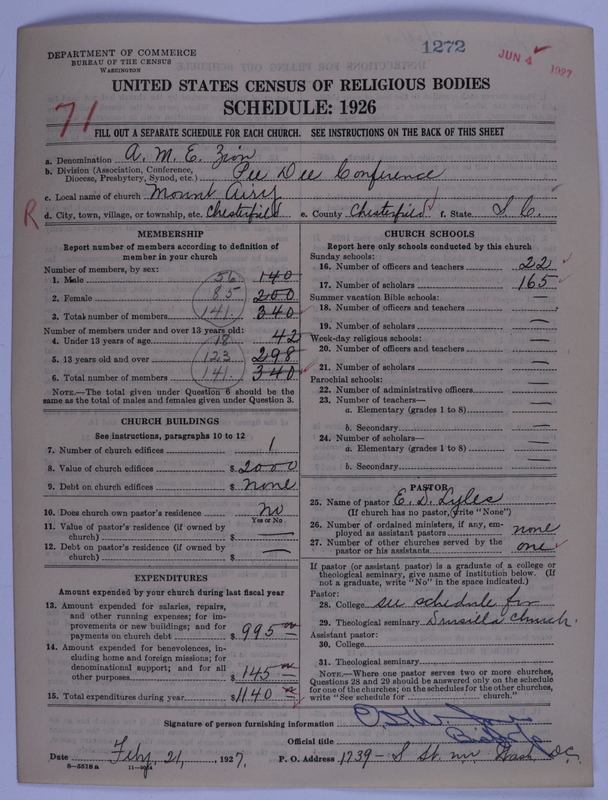 DEPARTMENT OF COMMERCE
BUREAU OF THE CENSUS
WASHINGTON
1272
JUN 4 1927
UNITED STATES CENSUS OF RELIGIOUS BODIES
SCHEDULE: 1926
71
FILL OUT A SEPARATE SCHEDULE FOR EACH CHURCH. SEE INSTRUCTIONS ON THE BACK OF THIS SHEET
a. Denomination A. M. E. Zion
b. Division (Association, Conference, Diocese, Presbytery, Synod, etc.) Pee Dee Conference
c. Local name of church Mount Airy
R
d. City, town, village, or township, etc. Chesterfield e. County Chesterfield f. State S C.
MEMBERSHIP
Report number of members according to definition of
member in your church
Number of members, by sex:
1. Male 56 140
2. Female 85 200
3. Total number of members 141. 340
Number of members under and over 13 years old:
4. Under 13 years of age 18 42
5. 13 years old and over 123 298
6. Total number of members 141. 340
NOTE.—The total given under Question 6 should be the
same as the total of males and females given under Question 3.
CHURCH BUILDINGS
See instructions, paragraphs 10 to 12
7. Number of church edifices 1
8. Value of church edifices $ 2000
9. Debt on church edifices $ none
10. Does church own pastor's residence? no
Yes or No
11. Value of pastor's residence (if owned by
church) $ —
12. Debt on pastor's residence (if owned by
church) $ —
EXPENDITURES
Amount expended by your church during last fiscal year
13. Amount expended for salaries, repairs,
and other running expenses; for im-
provements or new buildings; and for
payments on church debt $ 995 00
14. Amount expended for benevolences, in-
cluding home and foreign missions; for
denominational support; and for all
other purposes $ 145 00
15. Total expenditures during year $ 1140 00
CHURCH SCHOOLS
Report here only schools conducted by this church
Sunday schools:
16. Number of officers and teachers 22
17. Number of scholars 165
Summer vacation Bible schools:
18. Number of officers and teachers —
19. Number of scholars —
Week-day religious schools:
20. Number of officers and teachers —
21. Number of scholars —
Parochial schools:
22. Number of administrative officers —
23. Number of teachers—
a. Elementary (grades 1 to 8) —
b. Secondary —
24. Number of scholars—
a. Elementary (grades 1 to 8) —
b. Secondary —
PASTOR
25. Name of pastor E. D. Lyles
(If church has no pastor, write "None")
26. Number of ordained ministers, if any, em-
ployed as assistant pastors none
27. Number of other churches served by the
pastor or his assistants one
If pastor (or assistant pastor) is a graduate of a college or
theological seminary, give name of institution below. (If
not a graduate, write "No" in the space indicated.)
Pastor:
28. College see schedule for
29. Theological seminary Drusilla Church.
Assistant pastor:
30. College
31. Theological seminary
NOTE.—Where one pastor serves two or more churches,
Questions 28 and 29 should be answered only on the schedule
for one of the churches; on the schedules for the other churches,
write "See schedule for church."
Signature of person furnishing information
Official title Bishop
Date Feby, 21, 1927. P. O. Address 1739 - S St. nw. Wash, D.C.
8-5518a 11-9054